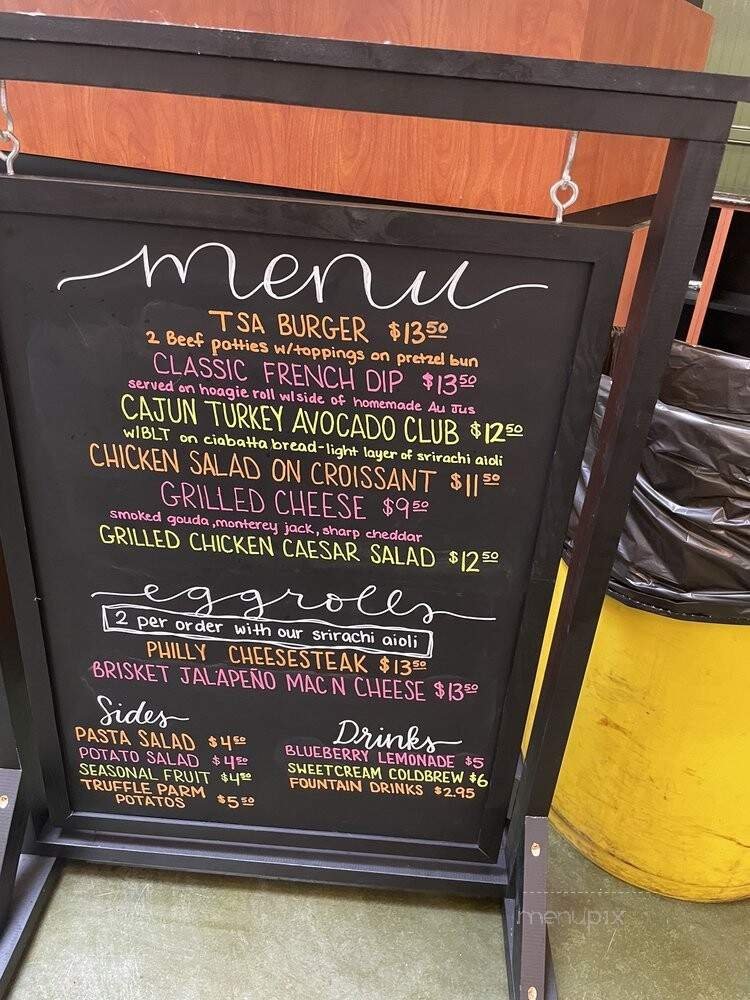 menu
TSA BURGER $13 50
2 Beef patties w/toppings on pretzel bun
CLASSIC FRENCH DIP $13 50
served on hoagie roll w/side of homemade Au Jus
CAJUN TURKEY AVOCADO CLUB $12 50
w/BLT on ciabatta bread-light layer of srirachi aioli
CHICKEN SALAD ON CROISSANT $11 50
GRILLED CHEESE $9 50
smoked gouda, monterey jack, sharp cheddar
GRILLED CHICKEN CAESAR SALAD $12 50
eggrolls
2 per order with our srirachi aioli
PHILLY CHEESESTEAK $13 50
BRISKET JALAPENO MAC N CHEESE $13 50
Sides
PASTA SALAD $4 50
POTATO SALAD $4 50
SEASONAL FRUIT $4 50
TRUFFLE PARM
POTATOS $5 50
Drinks
BLUEBERRY LEMONADE $5
SWEETCREAM COLDBREW $6
FOUNTAIN DRINKS $2.95
menupix